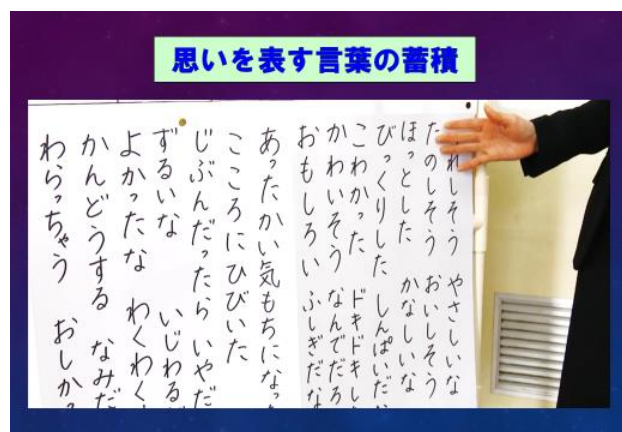 思いを表す言葉の蓄積
れしそう やさしいな
たのしそう おいしそう
ほっとした かなしいな
びっくりした しんぱいだ
こわかった ドキドキし
かわいそう なんでだろ
おもしろい ふしぎだな
あったかい気もちになっ
こころにひびいた
じぶんだったら いやだ
ずるいな いじわる
よかったな わくわく
かんどうする なみだ
わらっちゃう おしか